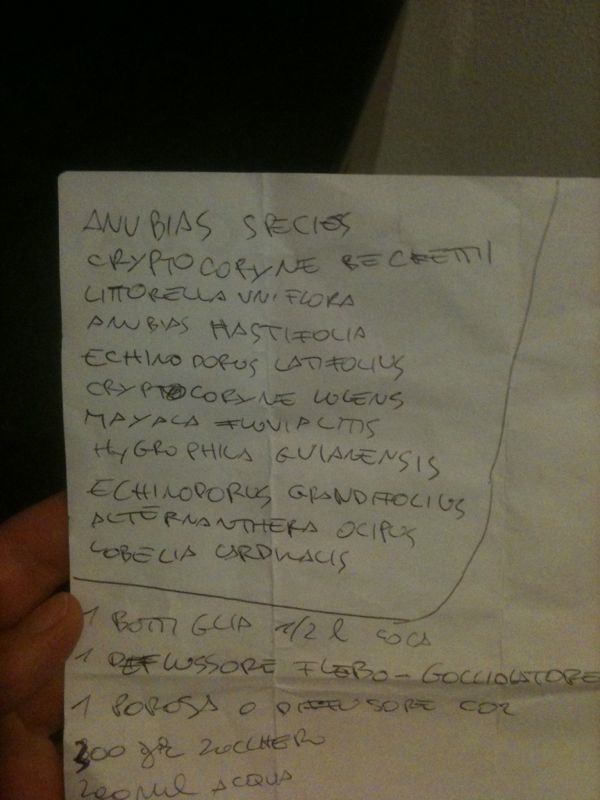 ANUBIAS SPECIES
CRYPTOCORYNE BECKETTII
LITTORELLA UNIFLORA
ANUBIAS HASTIFOLIA
ECHINODORUS LATIFOLIUS
CRYPTOCORYNE LUCENS
MAYACA FLUVIALITIS
HYGROPHILA GUIANENSIS
ECHINODORUS GRANDIFOLIUS
ALTERNANTHERA OCIPUS
LOBELIA CARDINALIS
1 BOTTIGLIA 1/2 l COCA
1 DEFLUSSORE FLEBO - GOCCIOLATORE
1 POROSA O DIFFUSORE CO2
300 gr ZUCCHERO
200 ml ACQUA